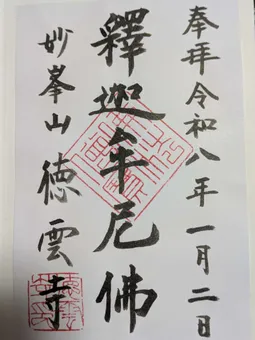 奉拝令和八年一月二日
釋迦牟尼佛
妙峯山徳雲寺